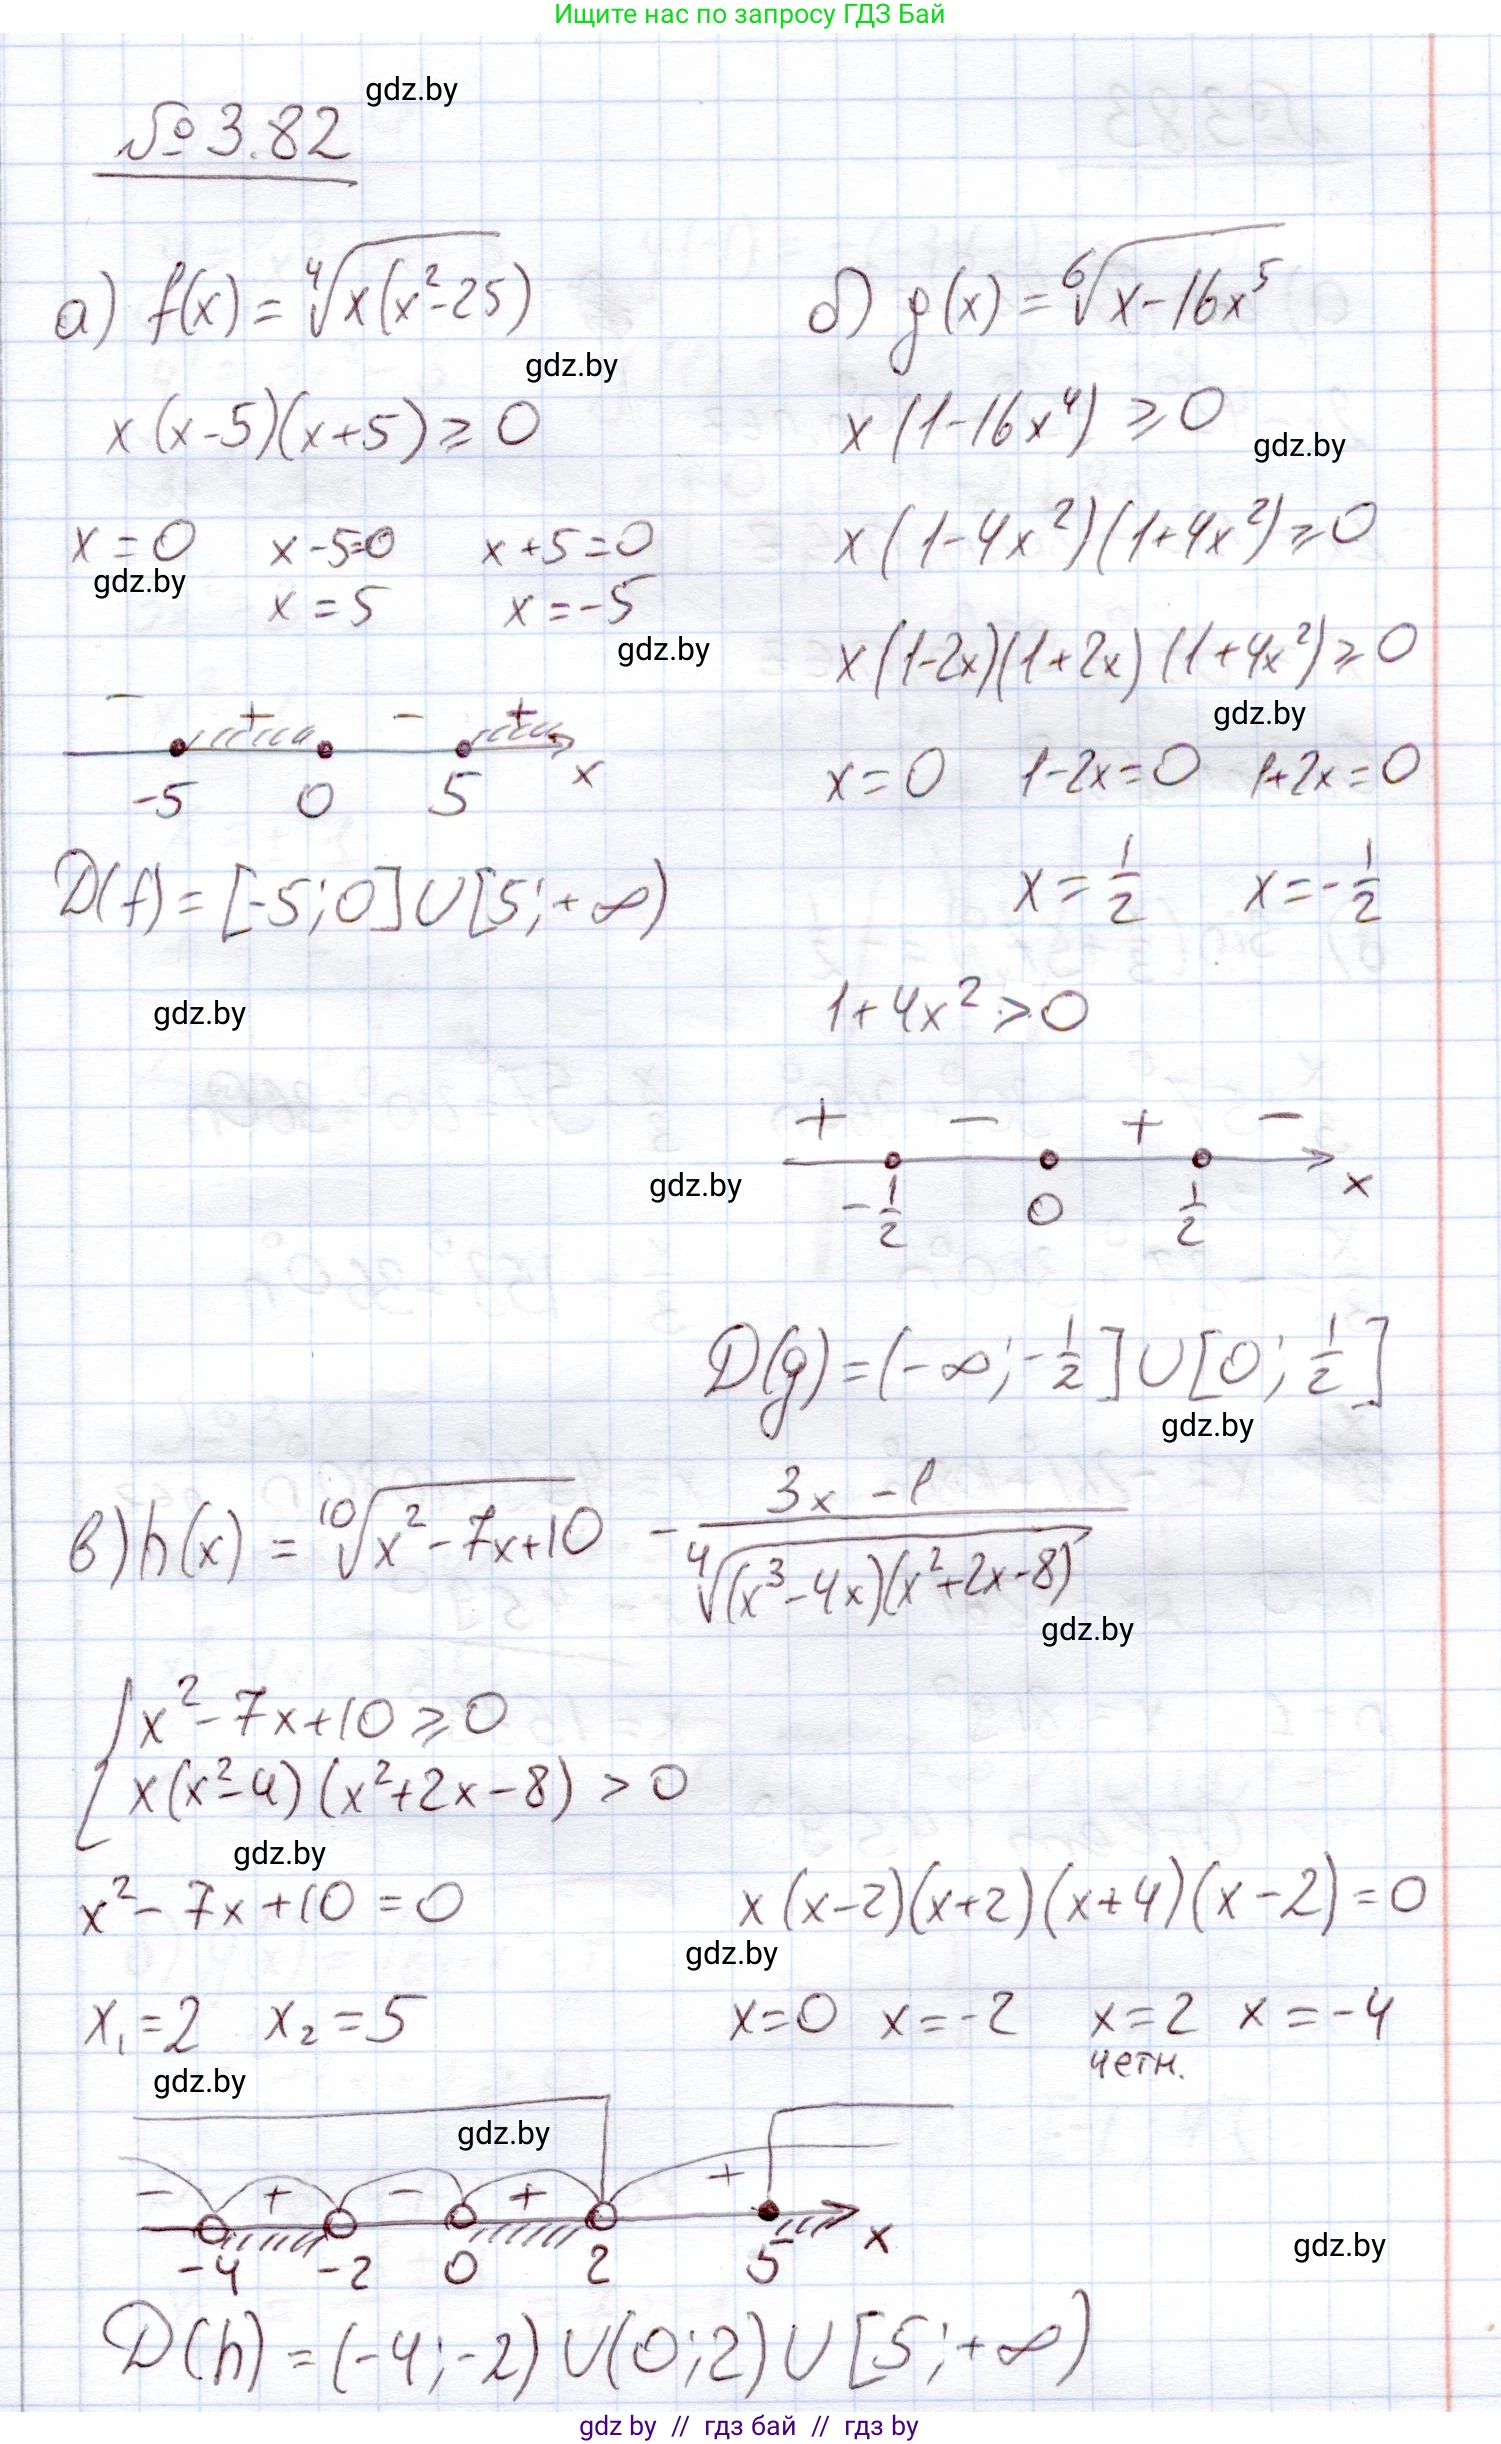 Ищите нас по запросу ГДЗ Бай
gdz.by
№3.82
а) f(x) = ⁴√(x(x²-25))
gdz.by
x(x-5)(x+5) ≥ 0
x=0 x-5=0 x+5=0
gdz.by
x=5 x=-5
gdz.by
- + - +
-5 0 5 x
D(f) = [-5;0]∪[5;+∞)
gdz.by
б) g(x) = ⁶√(x-16x⁵)
x(1-16x⁴) ≥ 0
gdz.by
x(1-4x²)(1+4x²) ≥ 0
x(1-2x)(1+2x)(1+4x²) ≥ 0
gdz.by
x=0 1-2x=0 1+2x=0
x=1/2 x=-1/2
1+4x² > 0
+ - + -
gdz.by
-1/2 0 1/2 x
D(g) = (-∞;-1/2]∪[0;1/2]
gdz.by
в) h(x) = ¹⁰√(x²-7x+10) - (3x-1)/⁴√((x³-4x)(x²+2x-8))
gdz.by
{x²-7x+10 ≥ 0
x(x²-4)(x²+2x-8) > 0
gdz.by
x²-7x+10=0 x(x-2)(x+2)(x+4)(x-2)=0
gdz.by
x₁=2 x₂=5 x=0 x=-2 x=2 x=-4
четн.
gdz.by
gdz.by
- + - + +
-4 -2 0 2 5 x
gdz.by
D(h) = (-4;-2)∪(0;2)∪[5;+∞)
gdz by // гдз бай // гдз by